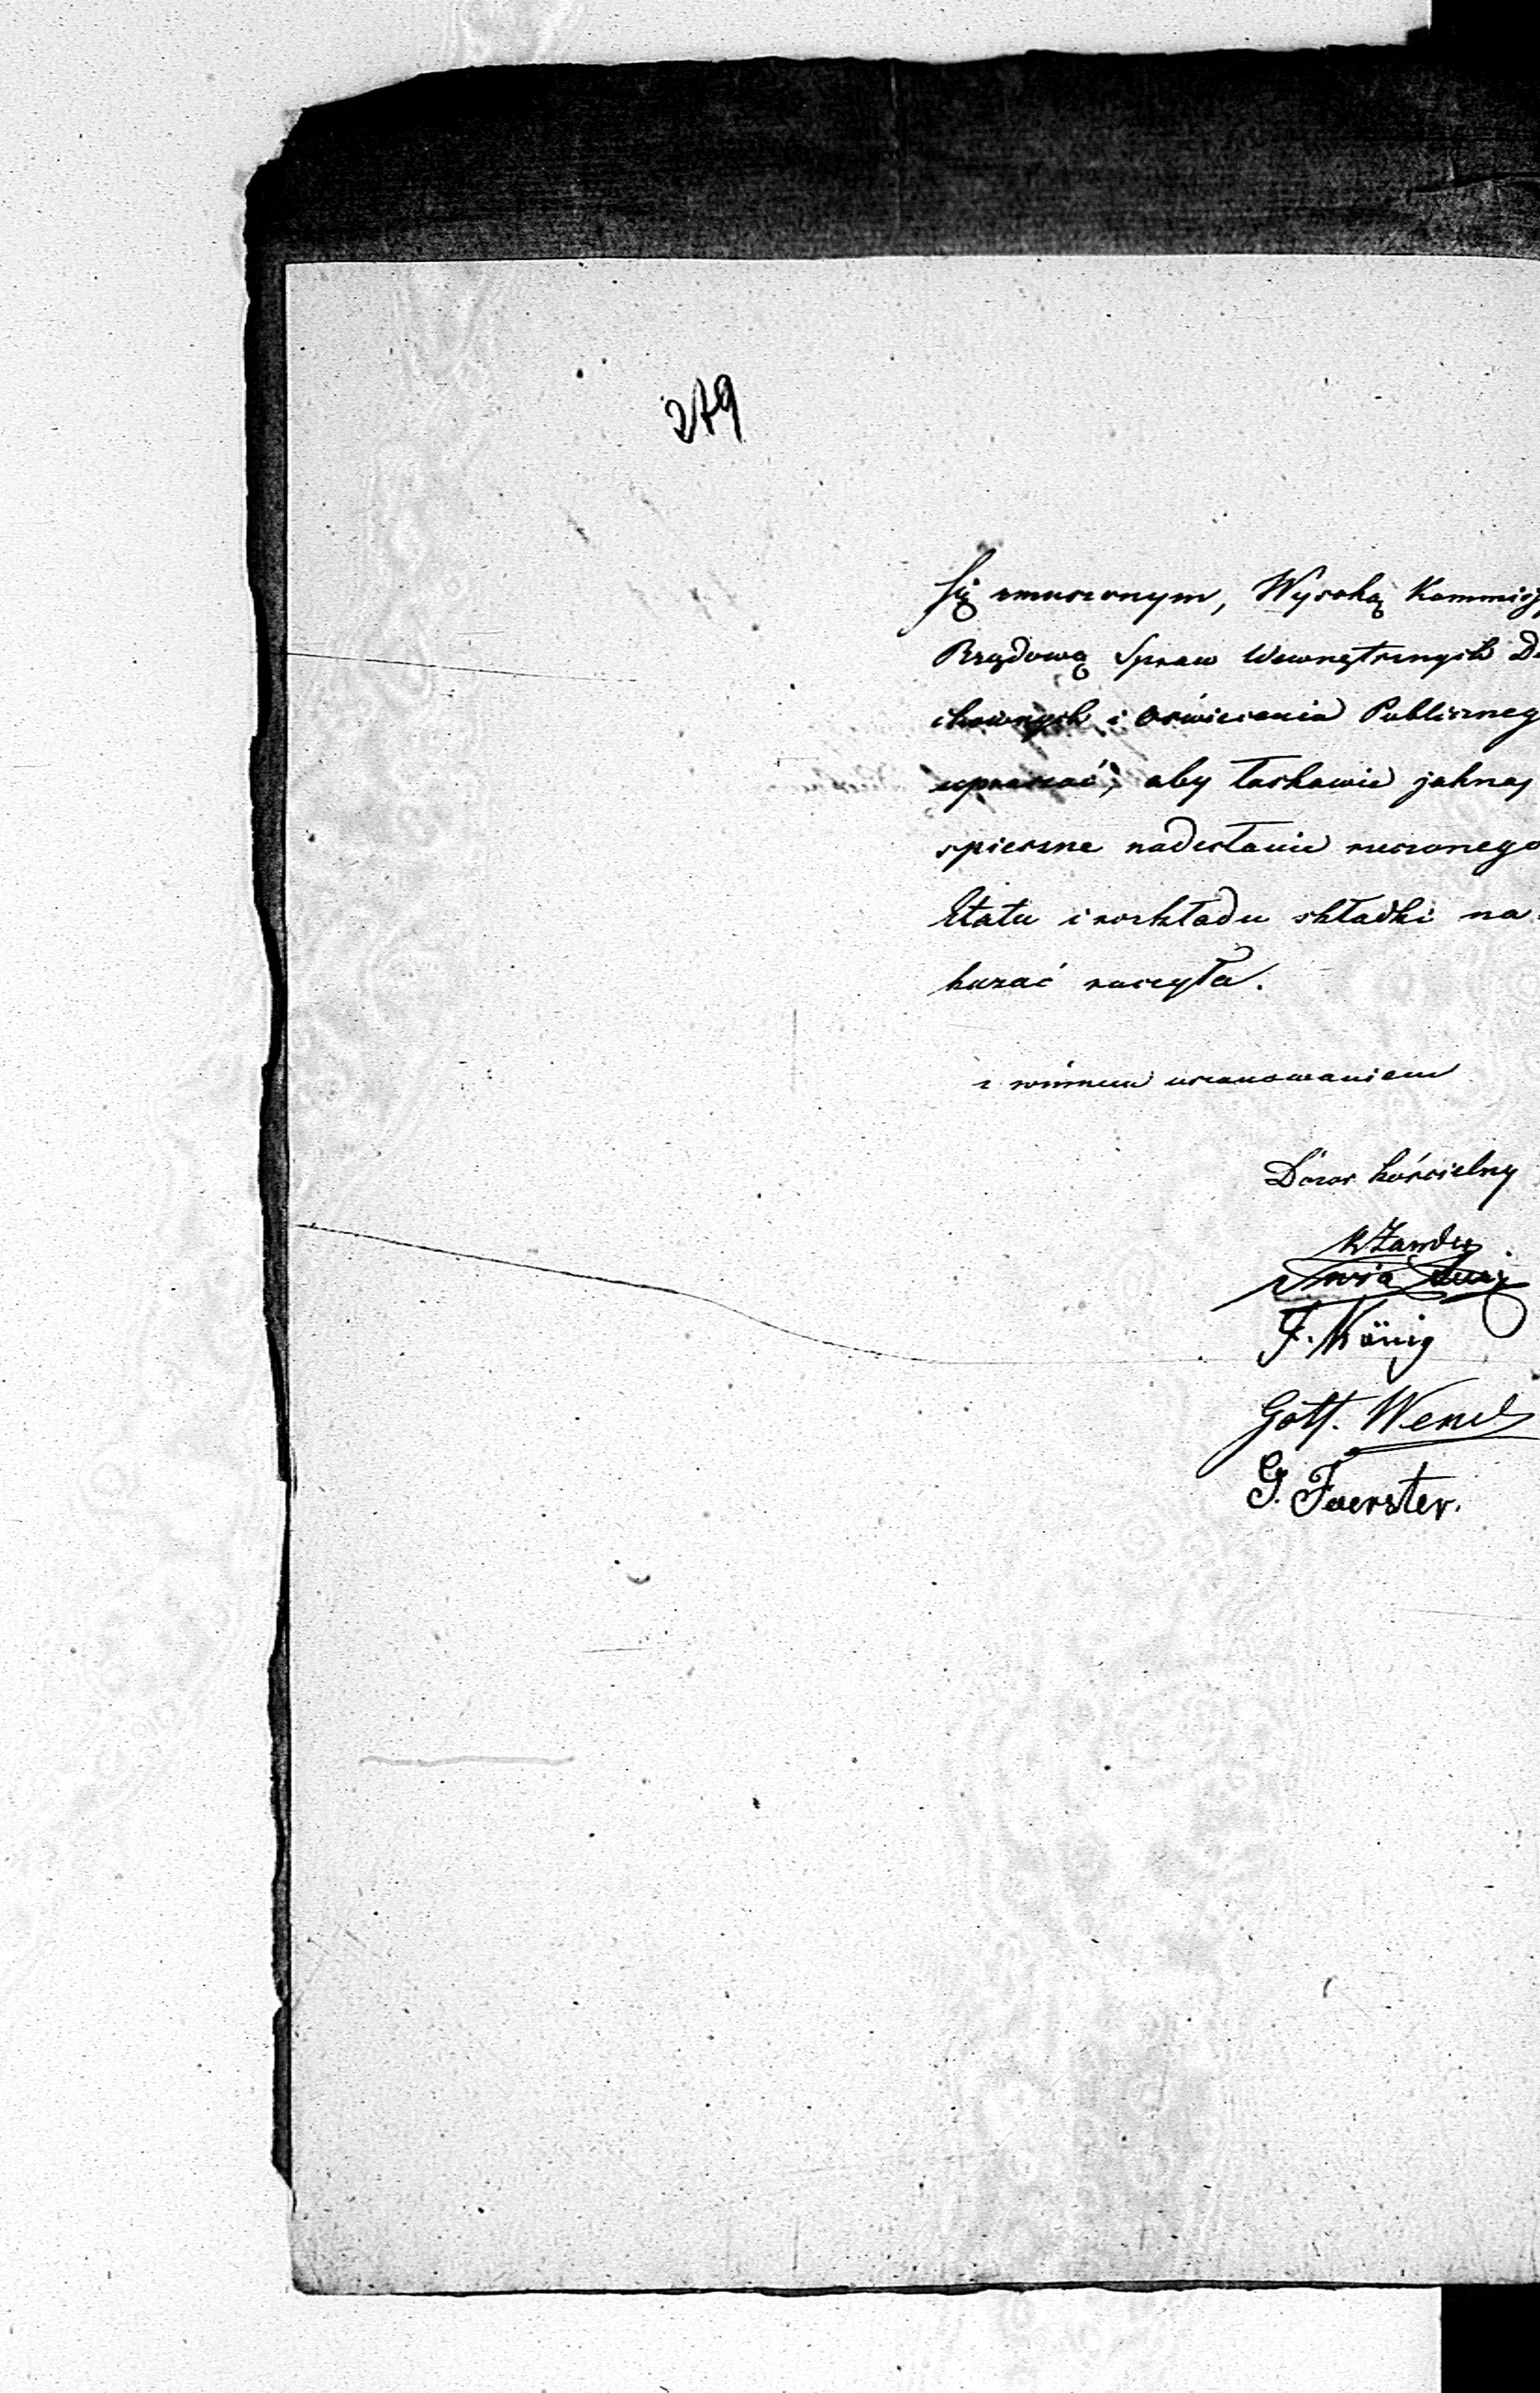 279
się zmuszonym, Wysoką Kommisj
Rządową Spraw Wewnętrznych Du
chownych i Oświecenia Publiczneg
upraszać, aby łaskawie jaknaj
spieszne nadesłanie rzeczonego
Etatu i rozkładu składki na
kazać raczyła.
z winnem uszanowaniem
Dozór kościelny
F. König
Gott. Wenel
G. Foerster.